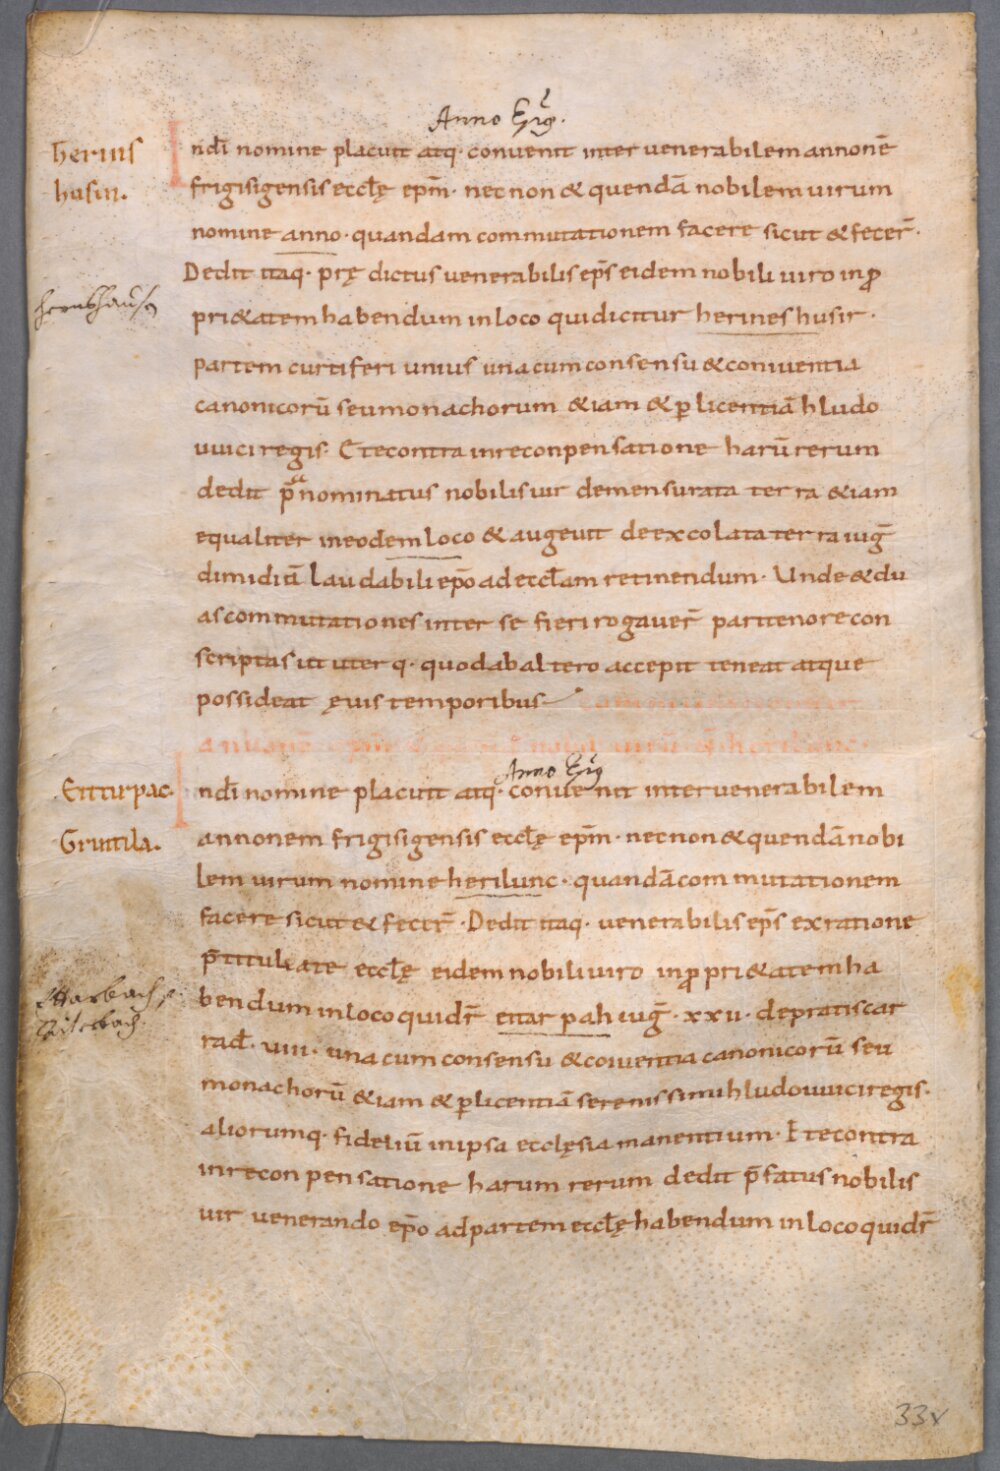 Anno Ep̄s.
herins
husir.
Indī nomine placuit atq· convenit inter venerabilem annonē
frigisigensis eccłę ep̄m· necnon & quendā nobilem uirum
nomine anno· quandam commutationem facere sicut & fecer̄·
Dedit itaq· prędictus uenerabilis ep̄s eidem nobili uiro in ꝓ
pri&atem habendum in loco qui dicitur herineshusir·
partem curtiferi unius una cum consensu & coniuentia
canonicorū seu monachorum &iam & ꝑ licentiā hludo
uuici regis· Et econtra in reconpensatione harū rerum
dedit p̄ᵃnominatus nobilis uir demensurata terra &iam
equaliter in eodem loco & augeuit de excolata terra iuḡ
dimidiū laudabili ep̄o ad eccłam retinendum· Unde & du
as commutationes inter se fieri rogauer̄ pari tenore con
scriptas ut uterq· quod ab altero accepit teneat atque
possideat ęuis temporibus
annonē ep̄m & nobilē uirū herilunc·
Anno Ep̄s
Eittirpac·
Gruitila.
Indī nomine placuit atq· conuenit inter uenerabilem
annonem frigisigensis eccłę ep̄m· necnon & quendā nobi
lem uirum nomine herilunc· quandā commutationem
facere sicut & fecer̄· Dedit itaq· uenerabilis ep̄s ex ratione
p̄titulatae eccłę eidem nobili uiro in ꝓpri&atem ha
bendum in loco qui dr̄ eitarpah iuḡ· xxii· de pratis car
rad̄· uiii· una cum consensu & coiuentia canonicorū seu
monachorū &iam & ꝑ licentiā serenissimi hludouuici regis·
aliorumq· fideliū in ipsa ecclęsia manentium· Et econtra
in reconpensatione harum rerum dedit p̄fatus nobilis
uir uenerando ep̄o ad partem eccłę habendum in loco qui dr̄
33v